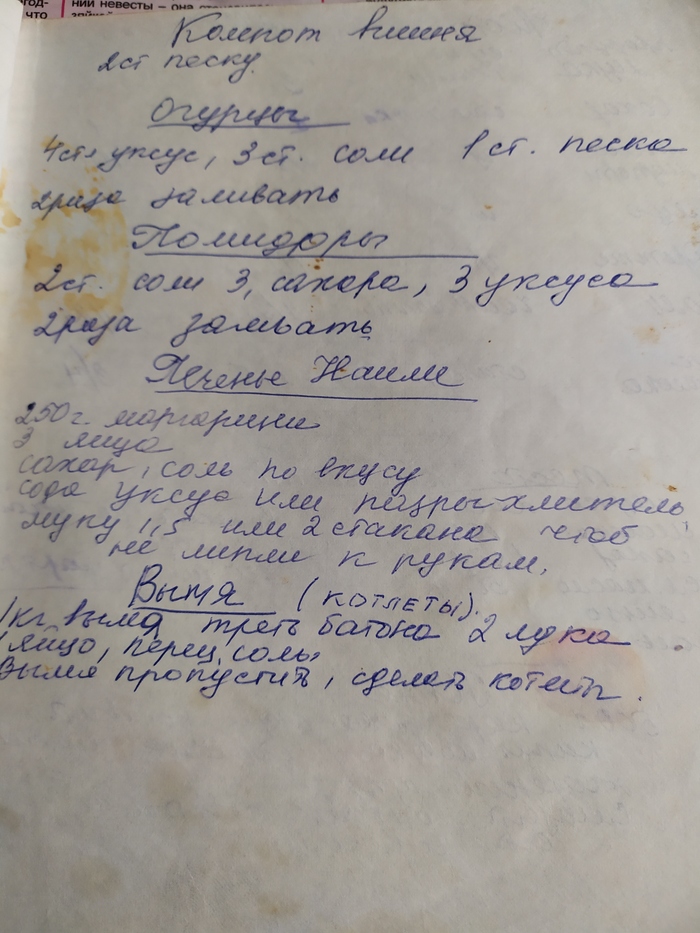 ний невесты – она
что
Компот вишня
2ст песку.
Огурцы
4ст уксус, 3 ст. соли 1 ст. песка
2раза заливать
Помидоры
2ст. соли 3, сахара, 3 уксуса
2раза заливать
Печенье Наили
250г. маргарина
3 яйца
сахар, соль по вкусу
сода уксус или разрыхлитель
муку 1,5 или 2 стакана чтоб
не липли к рукам.
Вымя (КОТЛЕТЫ).
1кг вымя треть батона 2 лука
1 яйцо, перец, соль,
Вымя пропустить, сделать котлеты.